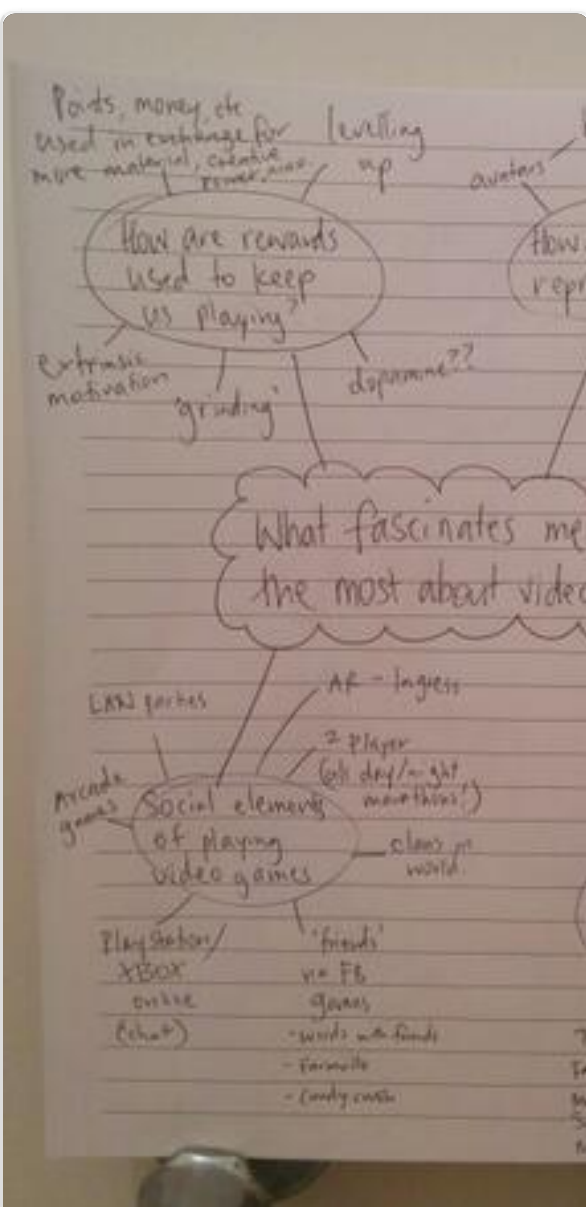 Points, money, etc
used in exchange for
more material, creative
power,
levelling
up
avatars
How are rewards
used to keep
us playing?
How
repr
extrinsic
motivation
'grinding'
dopamine??
What fascinates me
the most about video
LAN parties
AR - Ingress
2 Player
(all day/night
marathons!)
Arcade
games
Social elements
of playing
video games
clans in
world.
PlayStation/
XBOX
online
(chat)
'friends'
via FB
games
- words with friends
- Farmville
- Candy crush